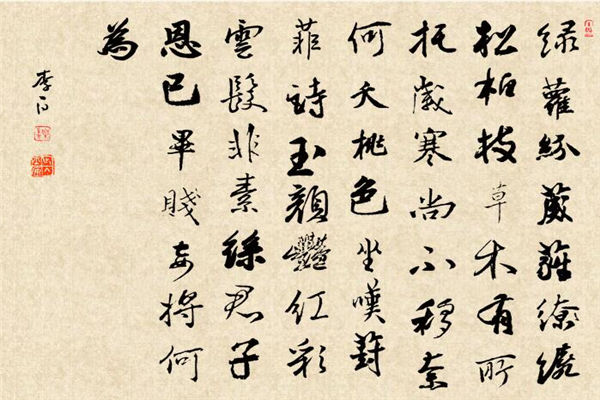 绿蘿紛葳蕤繚繞
松柏枝草木有所
托歲寒尚不移奈
何夭桃色坐嘆葑
菲詩玉顏豔紅彩
雲髮非素絲君子
恩已畢賤妾將何
為
李